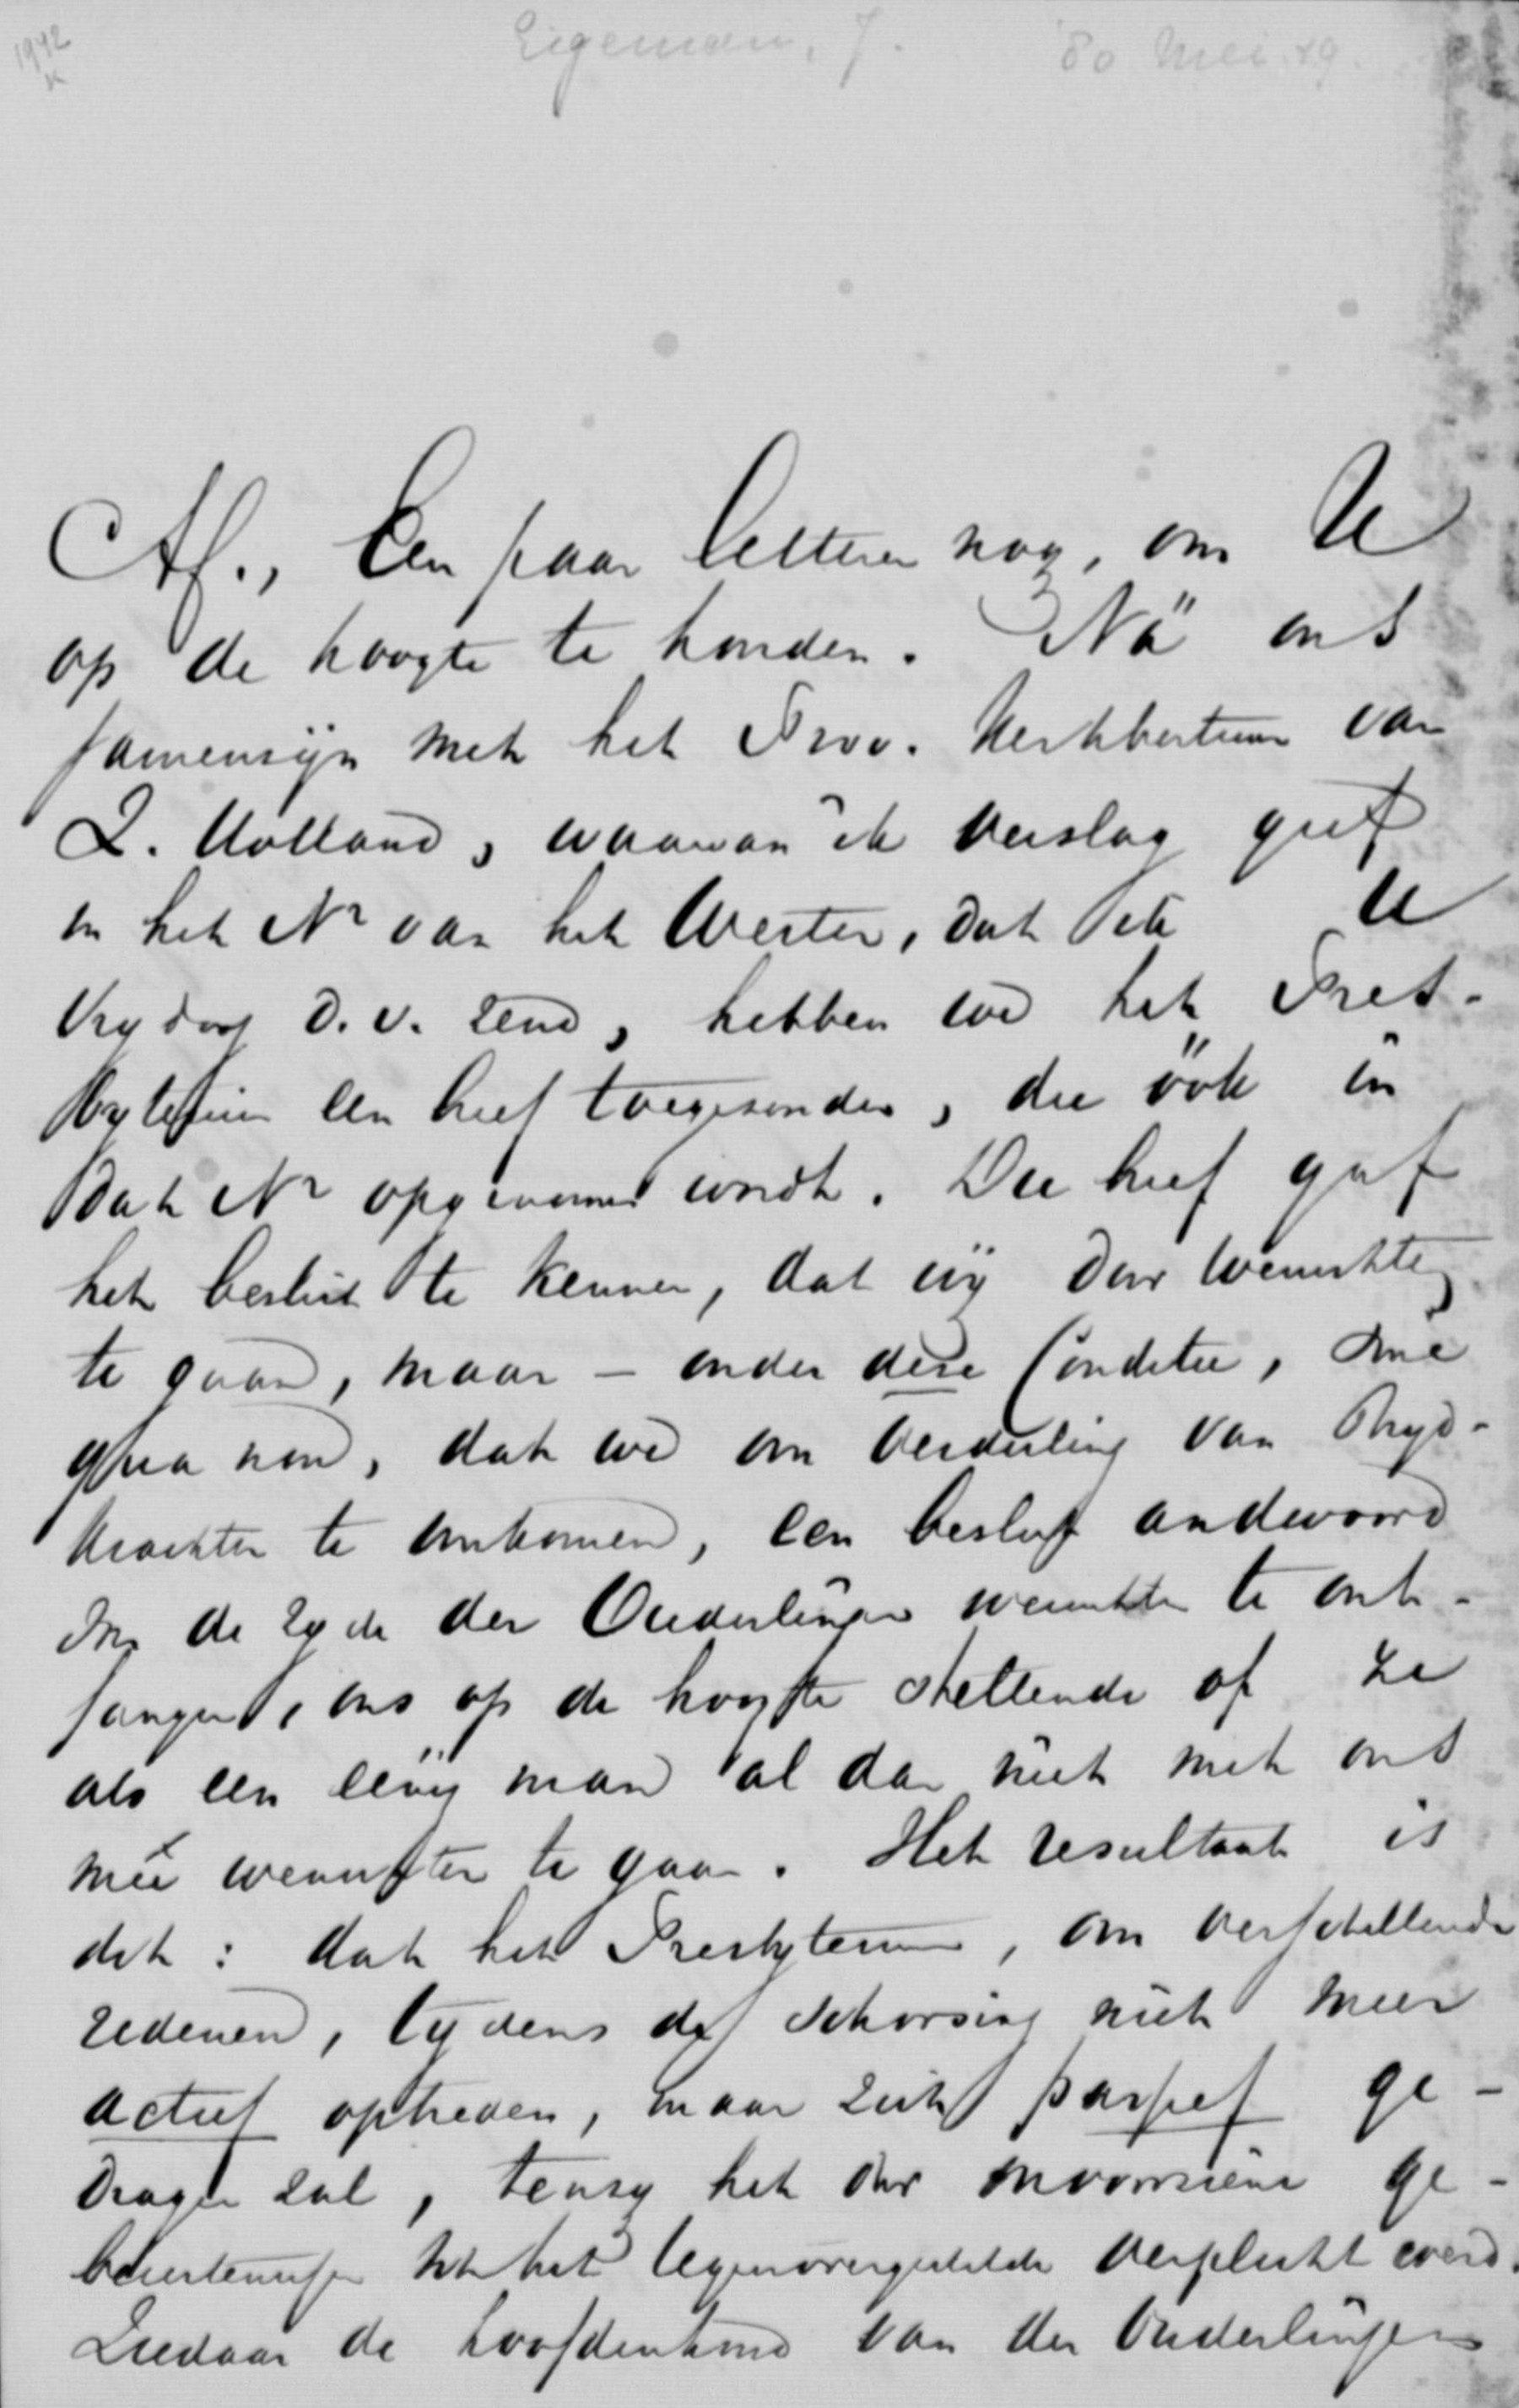 1942
K
Eigeman, J. 30 Mei 89.
Af., Een paar letteren nog, om U
op de hoogte te houden. Ná ons
samenzijn met het Prov. Kerkbestuur van
Z. Holland, waarvan ik verslag geef
in het Nr van het Westen, dat ik U
Vrydag D.V. zend, hebben we het Pres-
byterium een brief toegezonden, die óók in
dat Nr opgenomen wordt. Die brief gaf
het besluit te kennen, dat wy door wenschten
te gaan, maar - onder deze Conditie, sine
qua non, dat we om verdeeling van Stryd-
krachten te voorkomen, een beslist andwoord
van de zyde der Ouderlingen wenschten te ont-
fangen, ons op de hoogte stellende of ze
als een eenig man al dan niet met ons
meê wenschten te gaan. Het resultaat is
dit: dat het Presbyterium, om verschillende
redenen, tydens de schorsing niet meer
actief optreden, maar zich passief ge-
dragen zal, tenzy het door onvoorziene ge-
beurtenissen tot het tegenovergestelde verplicht werd.
Ziedaar de hoofdinhoud van der Ouderlingen